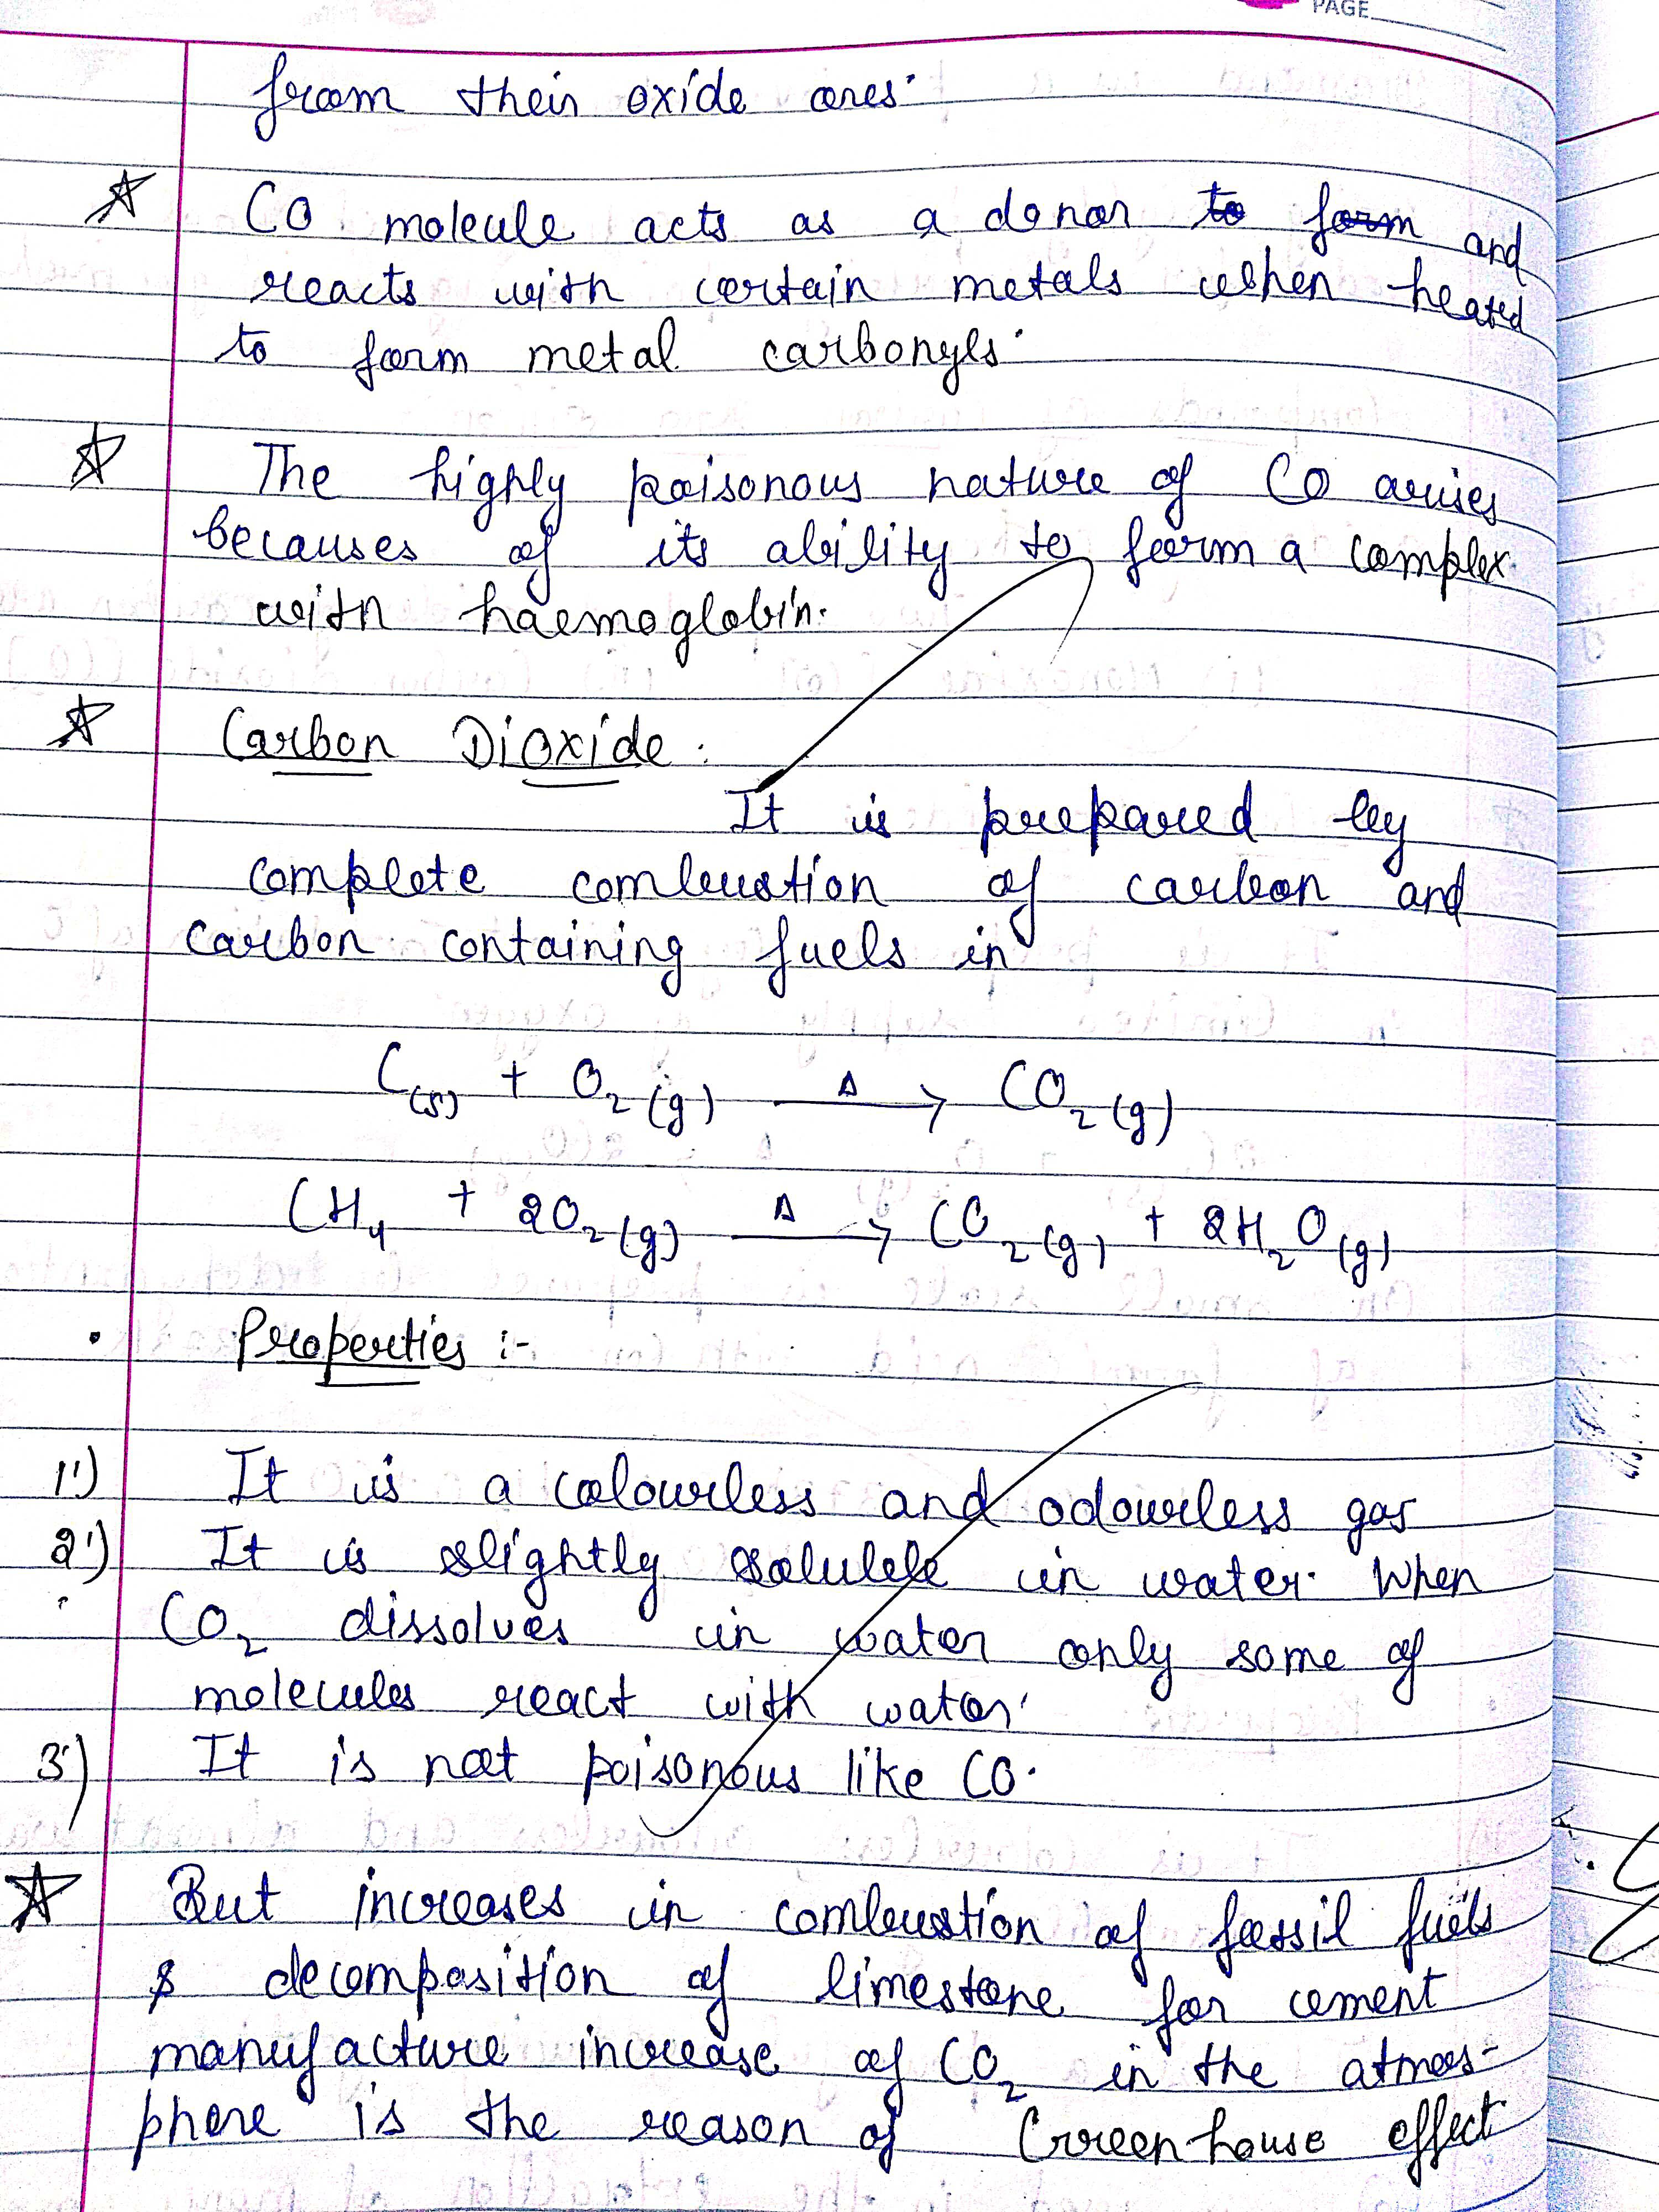 PAGE
from their oxide ores.
CO moleule acts as a donor to form and
reacts with certain metals when heated
to form metal carbonyls.
The highly poisonous nature of CO arises
becauses of its ability to form a complex
with haemoglobin.
Carbon Dioxide :
It is prepared by
complete combustion of carbon and
carbon containing fuels in
C(s) + O₂(g) —Δ→ CO₂(g)
CH₄ + 2O₂(g) —Δ→ CO₂(g) + 2H₂O(g)
• Properties :-
1.) It is a colourless and odourless gas
2.) It is slightly soluble in water. When
CO₂ dissolves in water only some of
molecules react with water.
3.) It is not poisonous like CO.
But increases in combustion of fossil fuels
& decomposition of limestone for cement
manufacture increase of CO₂ in the atmos-
phere is the reason of Greenhouse effect